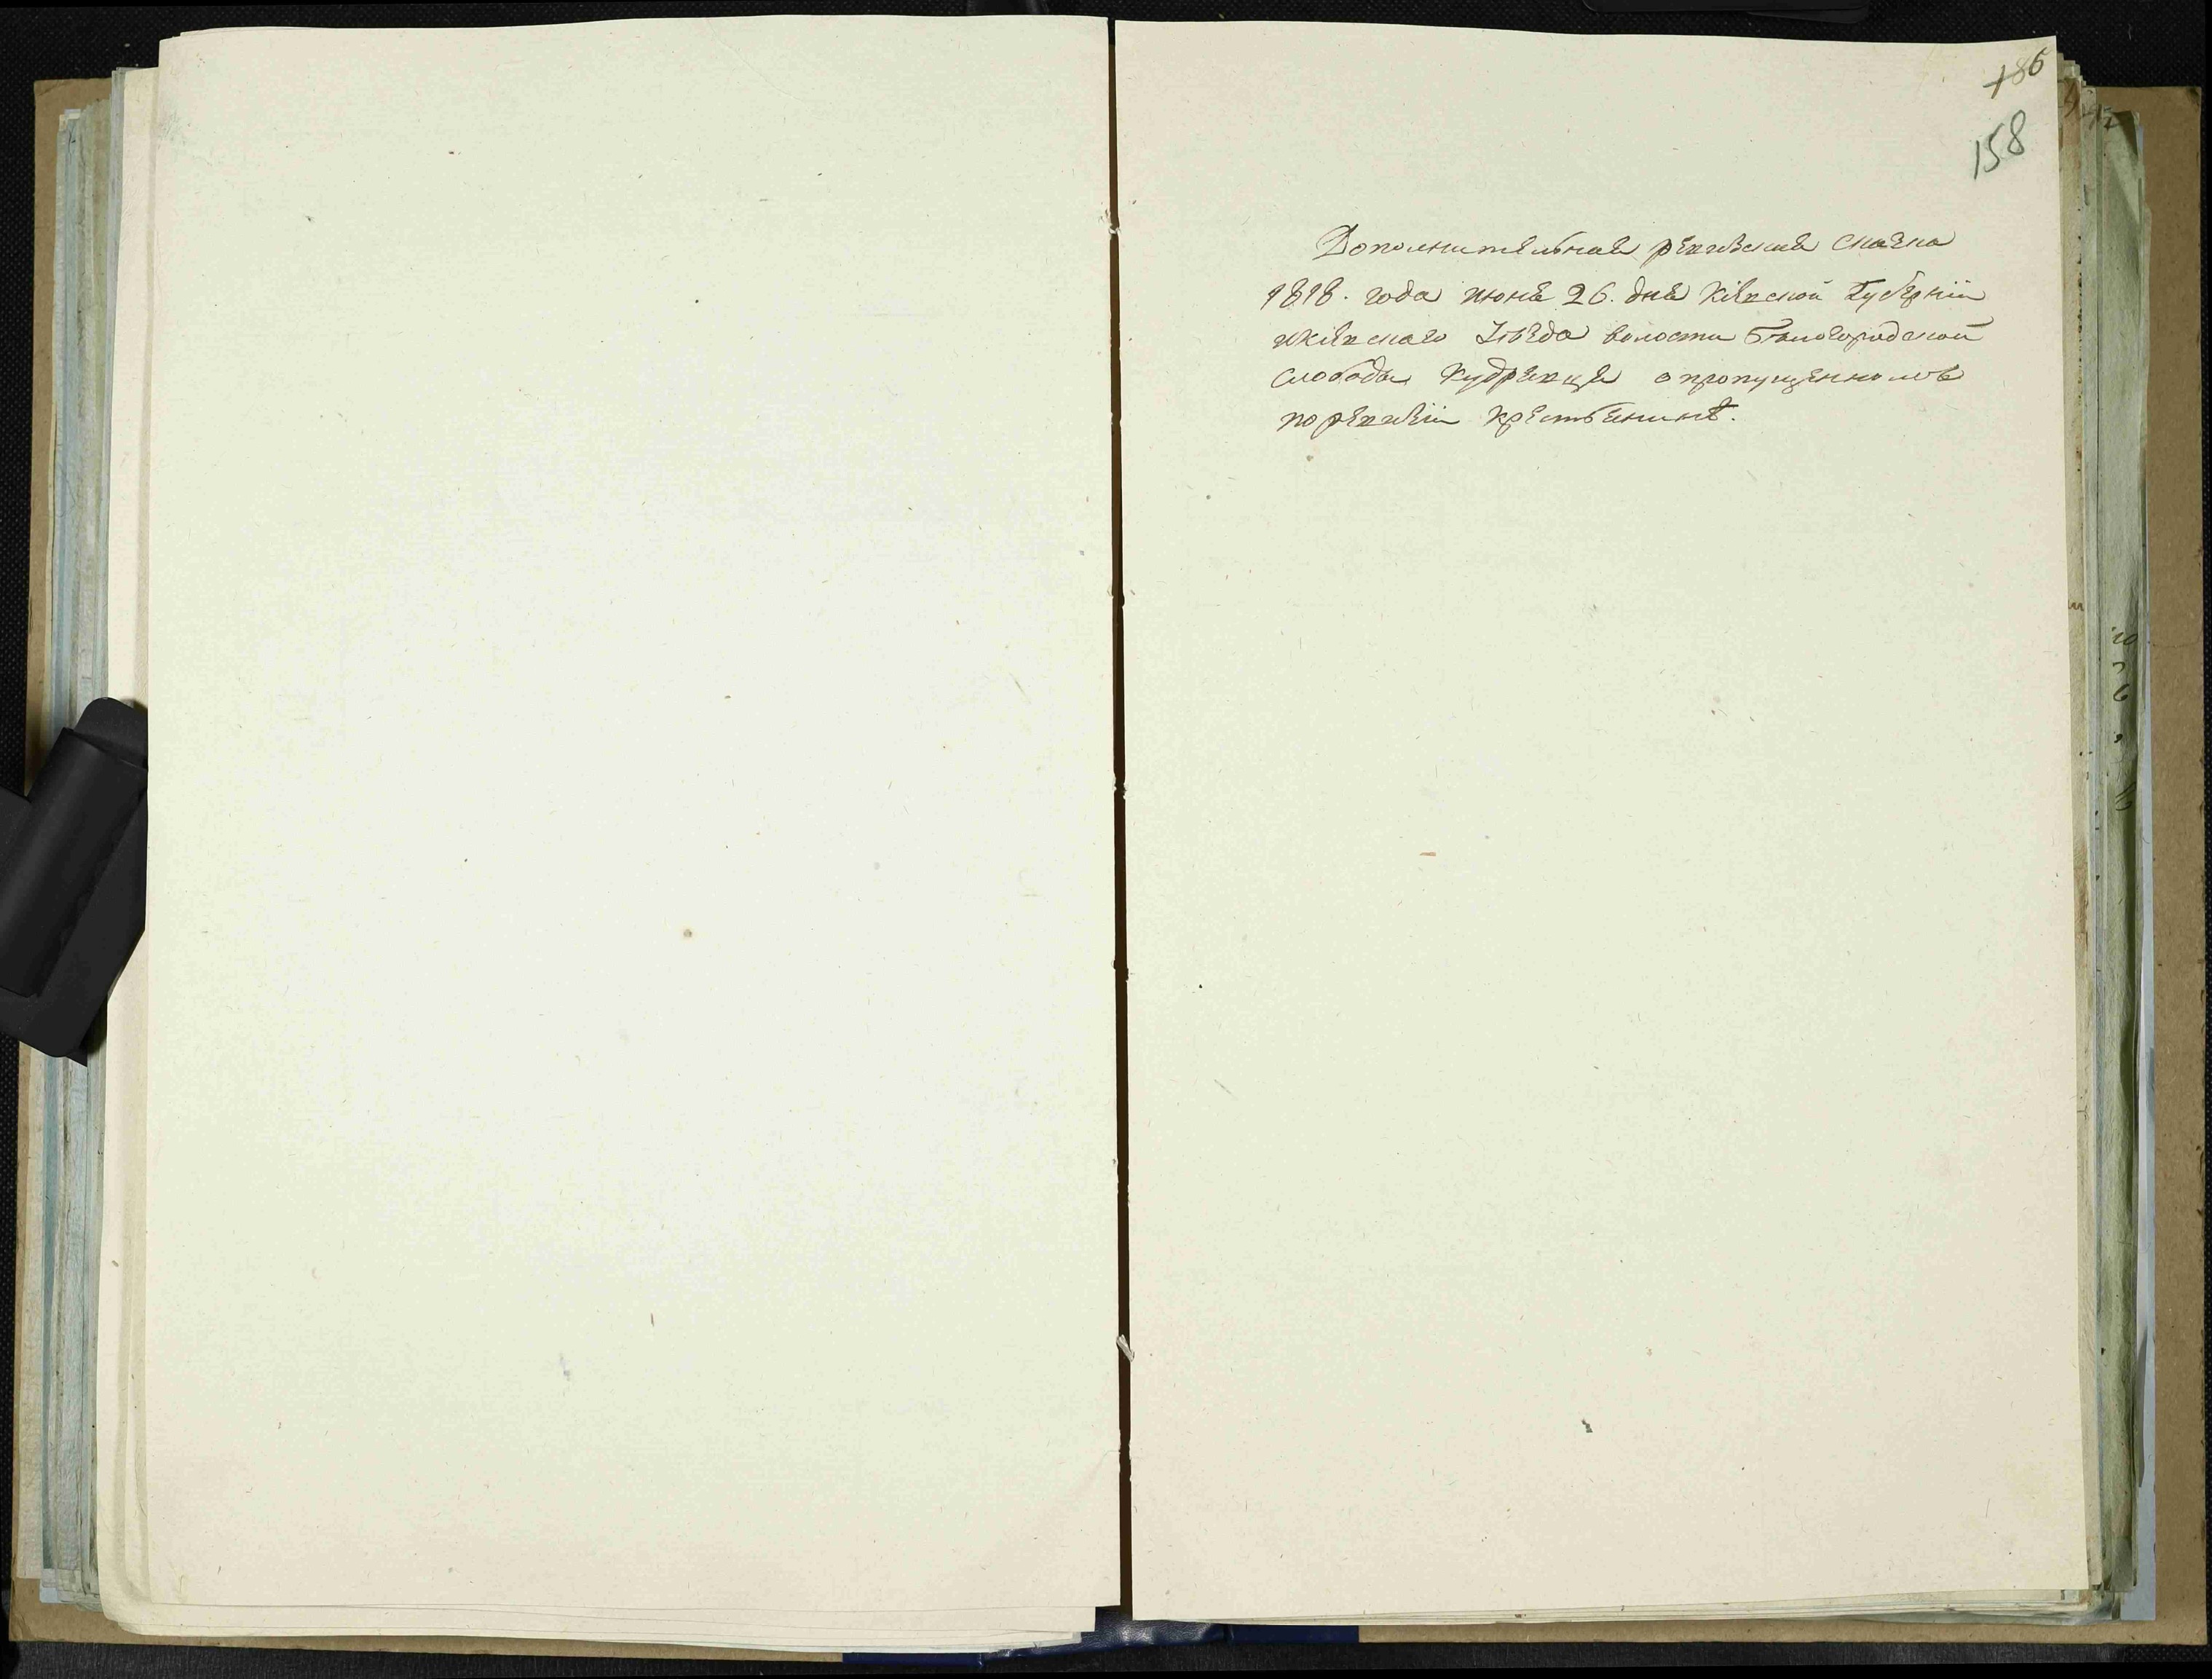 186
158
Дополнительная ревизская сказка
1818. года июня 26. дня Кіевской Губерніи
икіевскаго Уѣзда волости Бѣлогородской
слободы Кудрявца о пропущенномъ
по ревизіи крестьянинѣ.